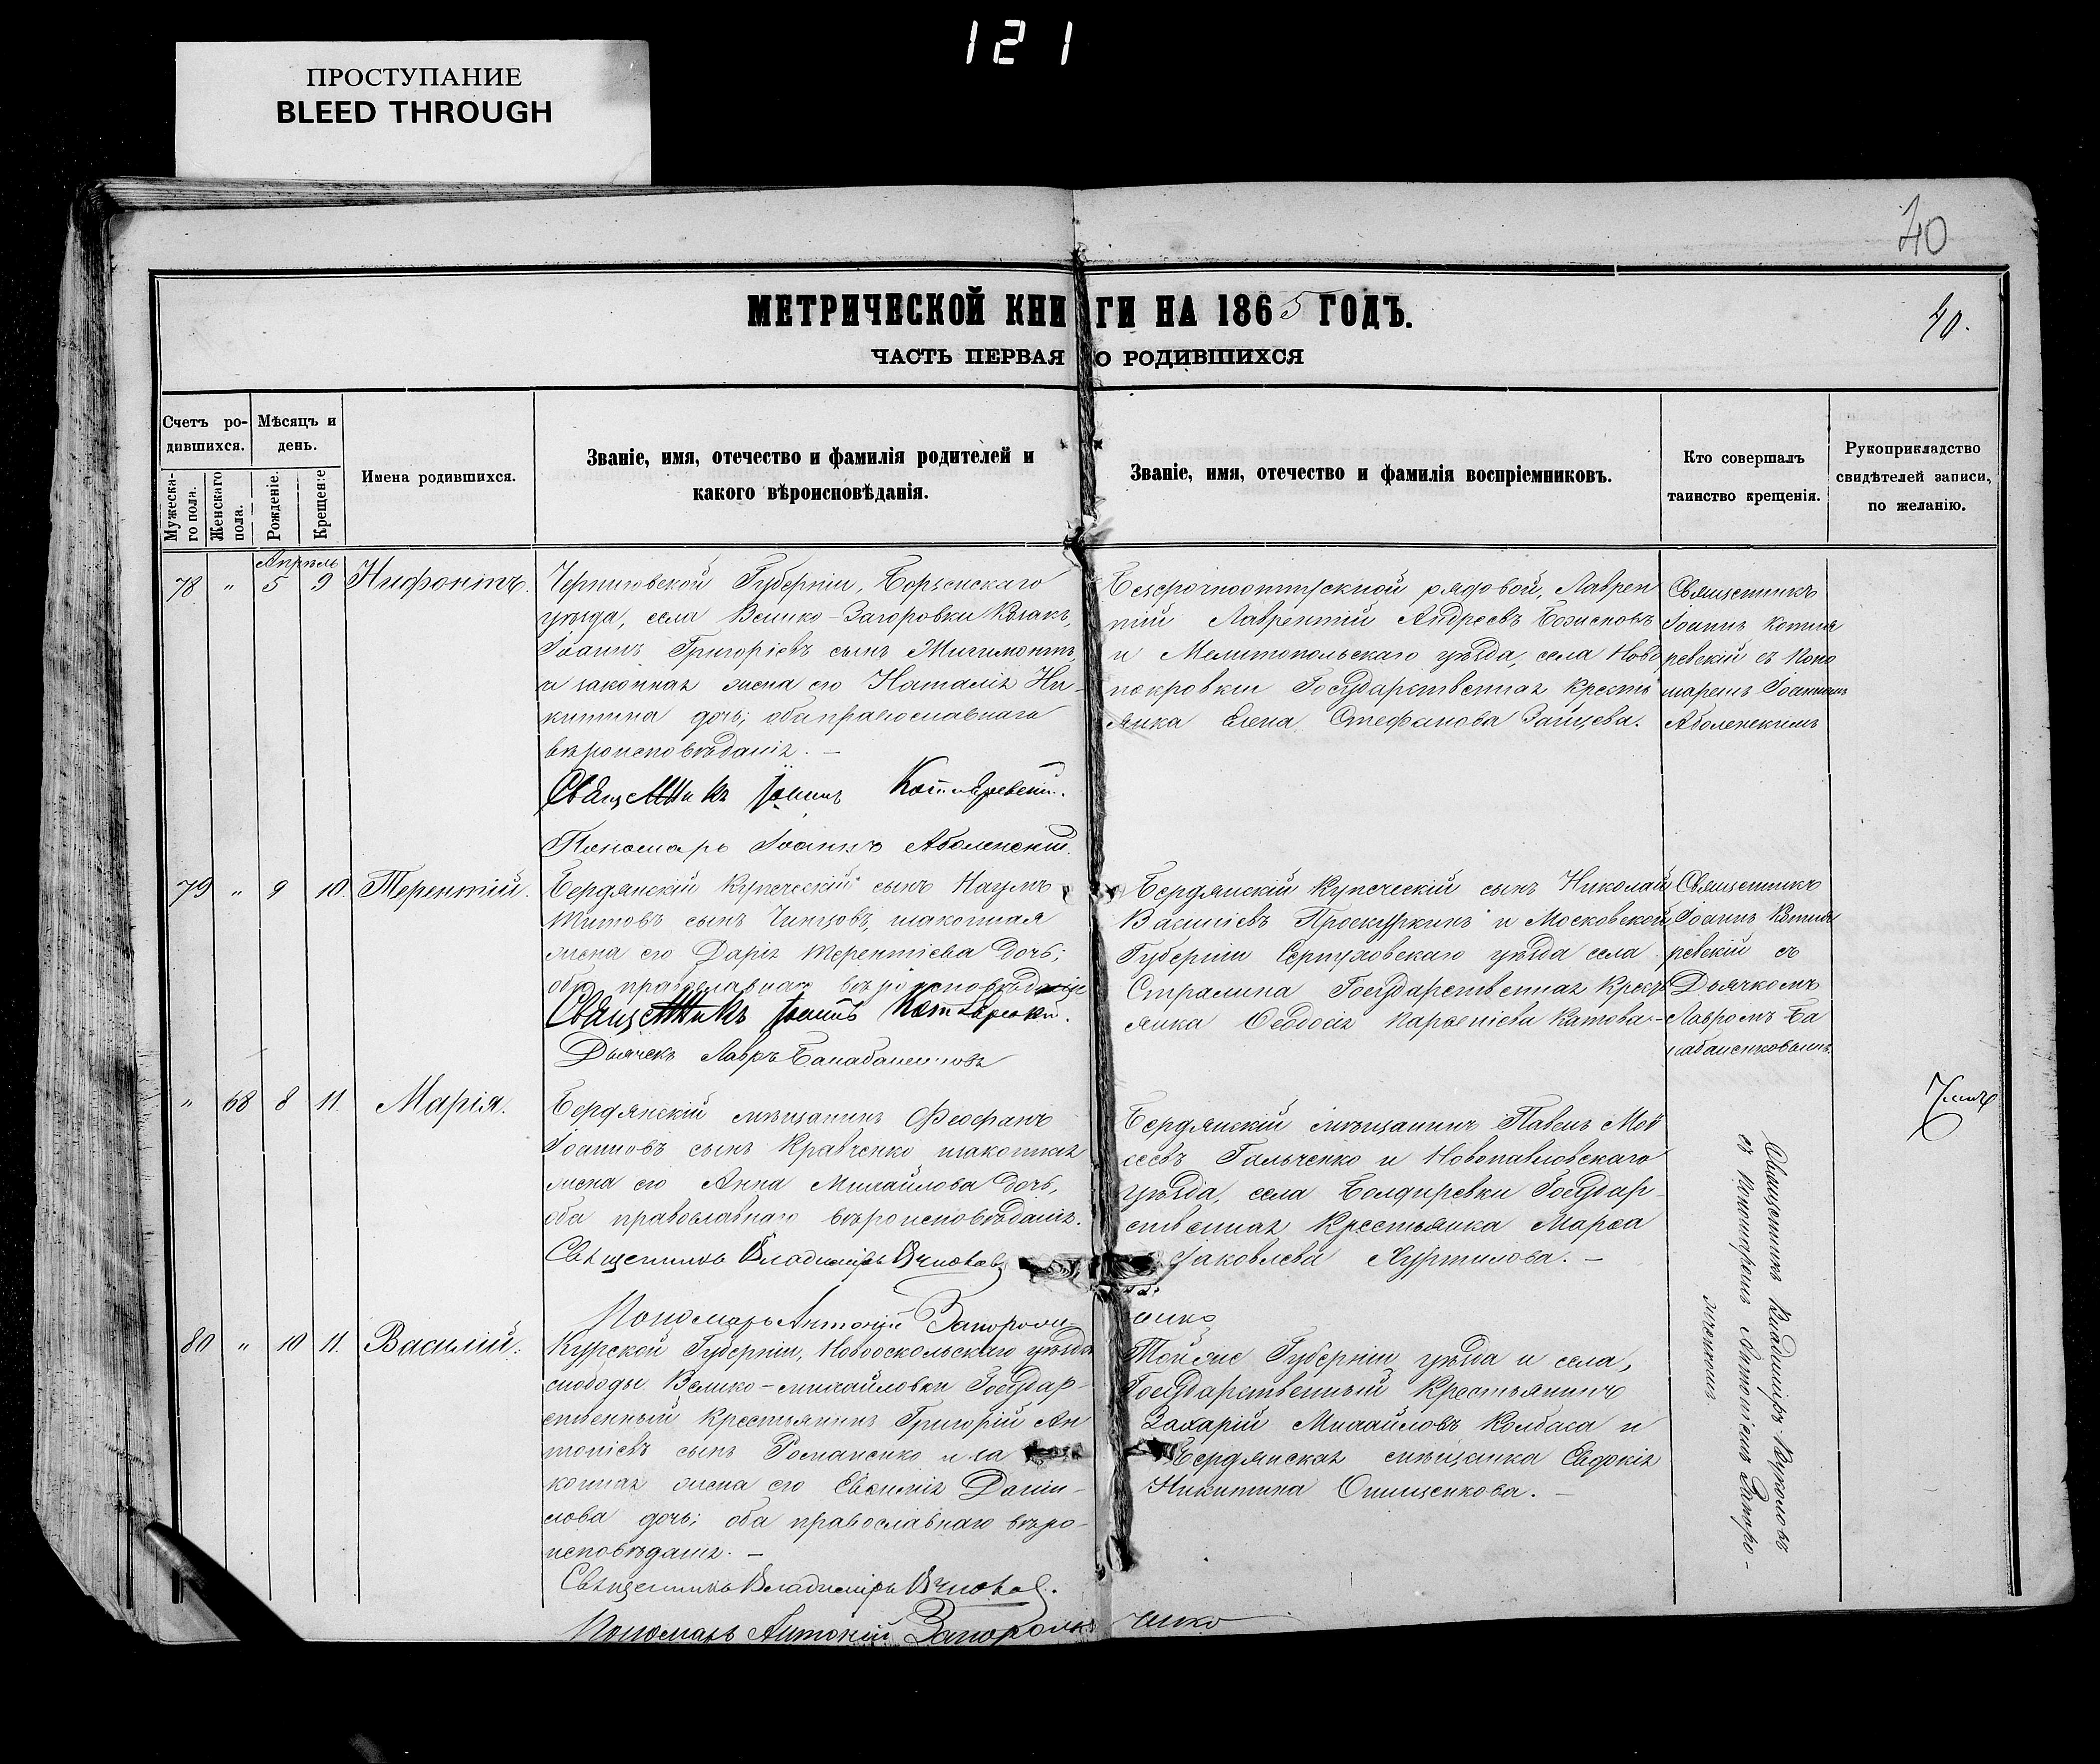 121
ПРОСТУПАНИЕ
BLEED THROUGH
40
МЕТРИЧЕСКОЙ КНИГИ НА 1865 ГОДЪ.
40.
ЧАСТЬ ПЕРВАЯ О РОДИВШИХСЯ
Счетъ ро-
дившихся.
Мѣсяцъ и
день.
Мужеска-
го пола.
Женскаго
пола.
Рожденіе.
Крещеніе
Имена родившихся.
Званіе, имя, отечество и фамилія родителей и
какого вѣроисповѣданія.
Званіе, имя, отечество и фамилія воспріемниковъ.
Кто совершалъ
таинство крещенія.
Рукоприкладство
свидѣтелей записи,
по желанію.
Апрѣль
78. " 5 9 Нифонтъ.
Черниговской Губерніи, Борзенскаго
уѣзда, села Велико-Загоровки Казакъ,
Іоаннъ Григоріевъ сынъ
и законная жена его Наталія Ни-
китина дочь; оба православнаго
вѣроисповѣданія. —
Священникъ Іоаннъ Котляревскій.
Пономарь Іоаннъ Аболенскій.
Безсрочноотпускной рядовой, Лаврен
тій Лаврентій Андреевъ
и Мелитопольскаго уѣзда, села Ново
покровки Государственная Кресть
янка Елена Стефанова Зайцева.
Священникъ
Іоаннъ Котля
ревскій съ Поно
маремъ Іоанномъ
Аболенскимъ
79 " 9 10. Терентій.
Бердянскій Купеческій сынъ Наумъ
Титовъ сынъ законная
жена его Дарія Терентіева дочь;
оба православнаго вѣроисповѣданія
Священникъ Іоаннъ Котляревскій.
Дьячекъ Лавръ
Бердянскій Купеческій сынъ Николай
Василіевъ Проскуркинъ и Московской
Губерніи Серпуховскаго уѣзда села
Государственная Кресть
янка Ѳеодосія Карпѣева Катова —
Священникъ
Іоаннъ Котля
ревскій съ
Дьячкомъ
Лавромъ Ба
" 68 8 11. Марія.
Бердянскій мѣщанинъ Феофанъ
Іоанновъ сынъ Кравченко законная
жена его Анна Михайлова дочь,
оба православнаго вѣроисповѣданія.
Священникъ Владиміръ
Пономарь Антоній
Бердянскій мѣщанинъ Павелъ Мой
сеевъ Гальченко и Новопавловскаго
уѣзда, села Болдиревки Государ-
ственная Крестьянка Марѳа
Іаковлева —
80 " 10 11. Василій.
Курской Губерніи, Новооскольскаго уѣзда
слободы Велико-михайловки Государ-
ственный Крестьянинъ Григорій Ан
тоніевъ сынъ Романенко и за
конная жена его Евфимія Дани-
лова дочь; оба православнаго вѣро-
исповѣданія. —
Священникъ Владиміръ
Пономарь Антоній
Тойже Губерніи уѣзда и села,
Государственный Крестьянинъ
Захарій Михайловъ Колбаса и
Бердянская мѣщанка Евдокія
Никитина Онищенкова. —
Священникъ Владиміръ
съ Пономаремъ Антоніемъ